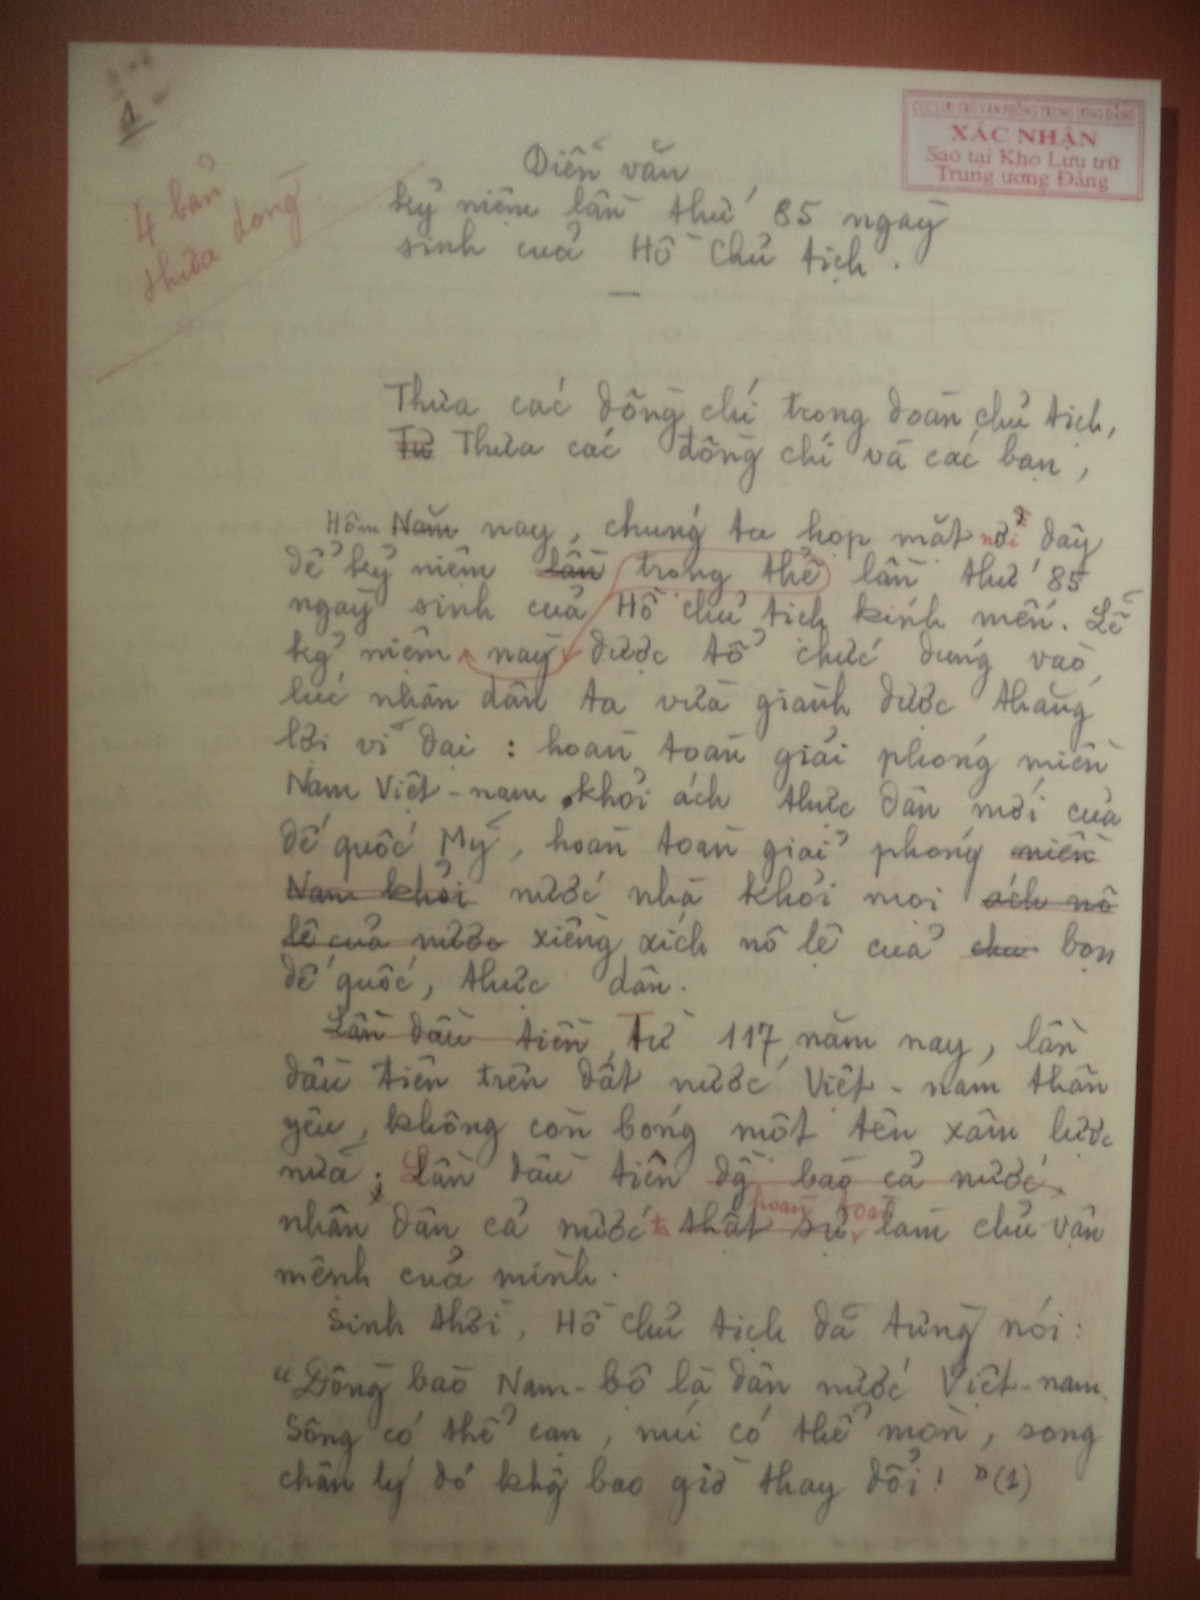 1
4 bản
thừa dòng
CỤC LƯU TRỮ VĂN PHÒNG TRUNG ƯƠNG ĐẢNG
XÁC NHẬN
Sao tại Kho Lưu trữ
Trung ương Đảng
Diễn văn
kỷ niệm lần thứ 85 ngày
sinh của Hồ Chủ tịch.
Thưa các đồng chí trong đoàn chủ tịch,
Từ Thưa các đồng chí và các bạn,
Hôm Năm nay, chúng ta họp mặt nơi ở đây
để kỷ niệm lần trọng thể lần thứ 85
ngày sinh của Hồ chủ tịch kính mến. Lễ
kỷ niệm này được tổ chức đúng vào
lúc nhân dân ta vừa giành được thắng
lợi vĩ đại : hoàn toàn giải phóng miền
Nam Việt-nam khỏi ách thực dân mới của
đế quốc Mỹ, hoàn toàn giải phóng miền
Nam khỏi nước nhà khỏi mọi ách nô
lệ của nước xiềng xích nô lệ của chủ bọn
đế quốc, thực dân.
Lần đầu tiên, Từ 117 năm nay, lần
đầu tiên trên đất nước Việt-nam thân
yêu, không còn bóng một tên xâm lược
nữa ; Lần đầu tiên đg̀ bào cả nước,
hoàn toàn
nhân dân cả nước ta thật sự làm chủ vận
mệnh của mình.
Sinh thời, Hồ Chủ tịch đã từng nói :
"Đồng bào Nam-bộ là dân nước Việt-nam.
Sông có thể cạn, núi có thể mòn, song
chân lý đó khg̀ bao giờ thay đổi ! "(1)